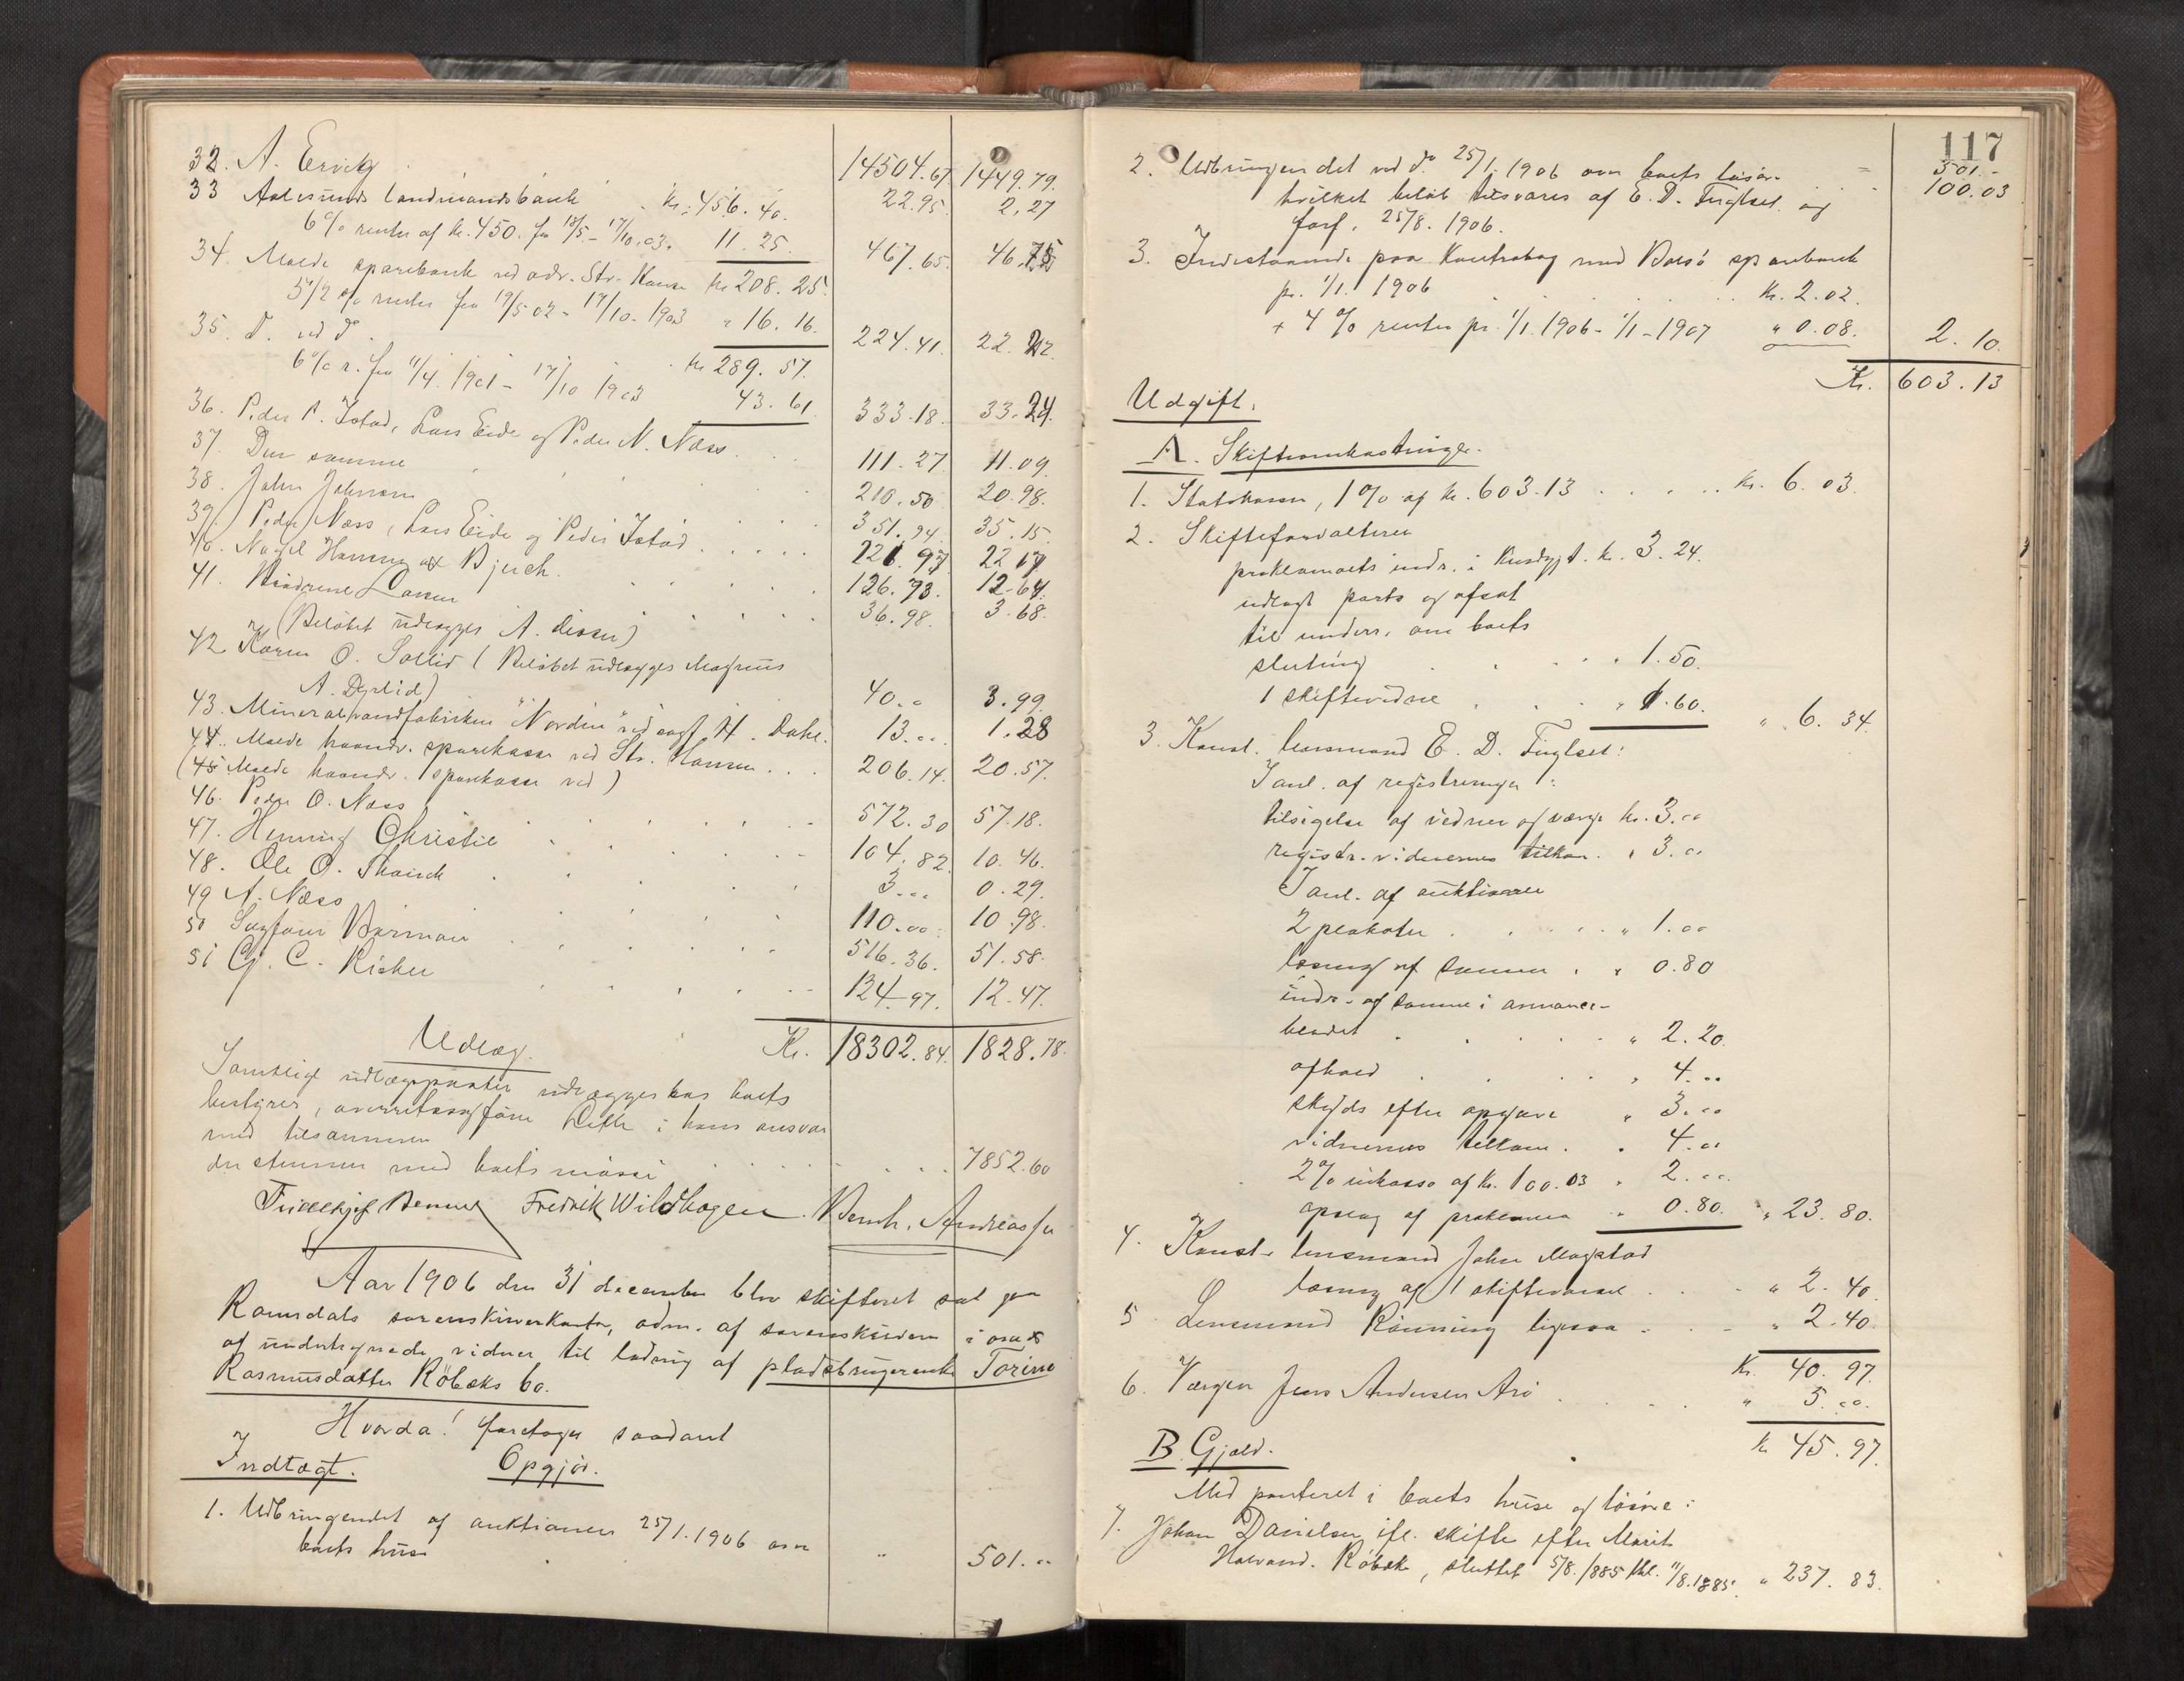 14504.67 1449.79.
32. A. Ervig 22.95. 2.27
33 Aalesunds landmandsbank kr. 456.40.
6% renter af kr. 450. fra 18/5. - 17/10.03. 11.25. 467.65. 46.75
34. Molde sparebank ved adv. Str. Hansen kr 208.25.
5 1/2 % renter fra 19/5 02 - 17/10. 1903 " 16.16. 224.41. 22.42.
35. do ved do. kr 289.57.
6% r. fra 11/4. 1901 - 17/10 1903 43.61. 333.18. 33.29.
36. Peder P. Istad, Lars Eide og Peder N. Næss 111.27. 11.09.
37. Den samme 210.50 20.98.
38. John Johnsen 351.94. 35.15.
39. Peder Næss, Lars Eide og Peder Istad 221.97. 22.17
40. Nagel Hansen & Bjerch. 126.73. 12.64.
41. Brødrene Larsen 36.98. 3.68.
(Beløbet udlægges A. )
42 Karen O. Sollid (Beløbet udlægges Magnus
A. Dyrlid) 40.. 3.99.
43. Mineralvandfabriken "Norden" ved sagf. H. Dahl. 13... 1.28
44. Molde haandv. sparekasse ved Str. Hansen... 206.14. 20.57.
(45 Molde haandv. sparekasse ved)
46. Peder O. Næss 572.30 57.18.
47. Henning Christie 104.82. 10.46.
48. Ole O. 3... 0.29.
49 A. Næss 110.00. 10.98.
50 Sagfører 516.36. 51.58.
51 G. C. Risker 124.97. 12.47.
Kr. 18302.84. 1828.78.
Udlæg.
Samtlige udlægsposter udlægges hos boets
bestyrer, overretssagfører i hans ansvar
med tilsammen 7852.60
der stemmer med boets masse
Fredrik Wildhagen. Bernh. Andreassen
Aar 1906 den 31 december blev skifteret sat paa
Romsdals sorenskriverkontor, adm. af sorenskriveren i overv.
af undertegnede vidner til ladning af pladsbrugerenke Torine
Rasmusdatter Röbæks bo.
Hvorda! foretoges saadant
Opgjör.
Indtægt.
1. Udbringendet af auktionen 25/1. 1906 over
boets huse " 501...
117
501.-
2. Udbringendet ved do 25/1. 1906 over boets lösöre 100.03
hvilket belöb tilsvares af E. D. Fuglset og
forf. 25/8. 1906.
3. Indestaaende paa kontrabog med Bolsö sparebank
pr. 1/1. 1906 Kr. 2.02.
+ 4% renter pr. 1/1. 1906 - 1/1 - 1907 " 0.08. 2.10.
Kr. 603.13
Udgift.
A. Skifteomkostninger.
1. Statskassen, 1% af kr. 603.13 kr. 6.03.
2. Skifteforvalteren
proklamaets indr. i Kundgj.t. kr. 3.24.
udlagt porto og afsat
til underr. om boets
slutning " 1.50.
1 skiftevidne " 1.60. " 6.34.
3. Konst. lensmand E. D. Fuglset:
I anl. af registreringen:
tilsigelse af vidner og værge kr. 3...
registr. vidnernes tilkom. " 3...
I anl. af auktionen
2 plakater " 1...
læsning af samme " 0.80
indr. af samme i annonce-
bladet " 2.20.
afhold " 4...
skyds efter opgave " 3...
vidnernes tilkom. " 4...
2% inkasso af kr. 100.03 " 2...
opslag af proklama " 0.80. " 23.80.
4. Konst. lensmand John Magstad
læsning af 1 skiftevarsel " 2.40.
5 Lensmand Rönning ligesaa " 2.40.
Kr. 40.97.
6. Værgen Jens Andersen Arö " 5...
Kr 45.97.
B. Gjæld.
Med panteret i boets huse og lösöre:
7. Johan Danielsen ifl. skifte efter Marit
Halvorsd. Röbæk, sluttet 5/8. 1885 thl. 11/8.1885. " 237.83.